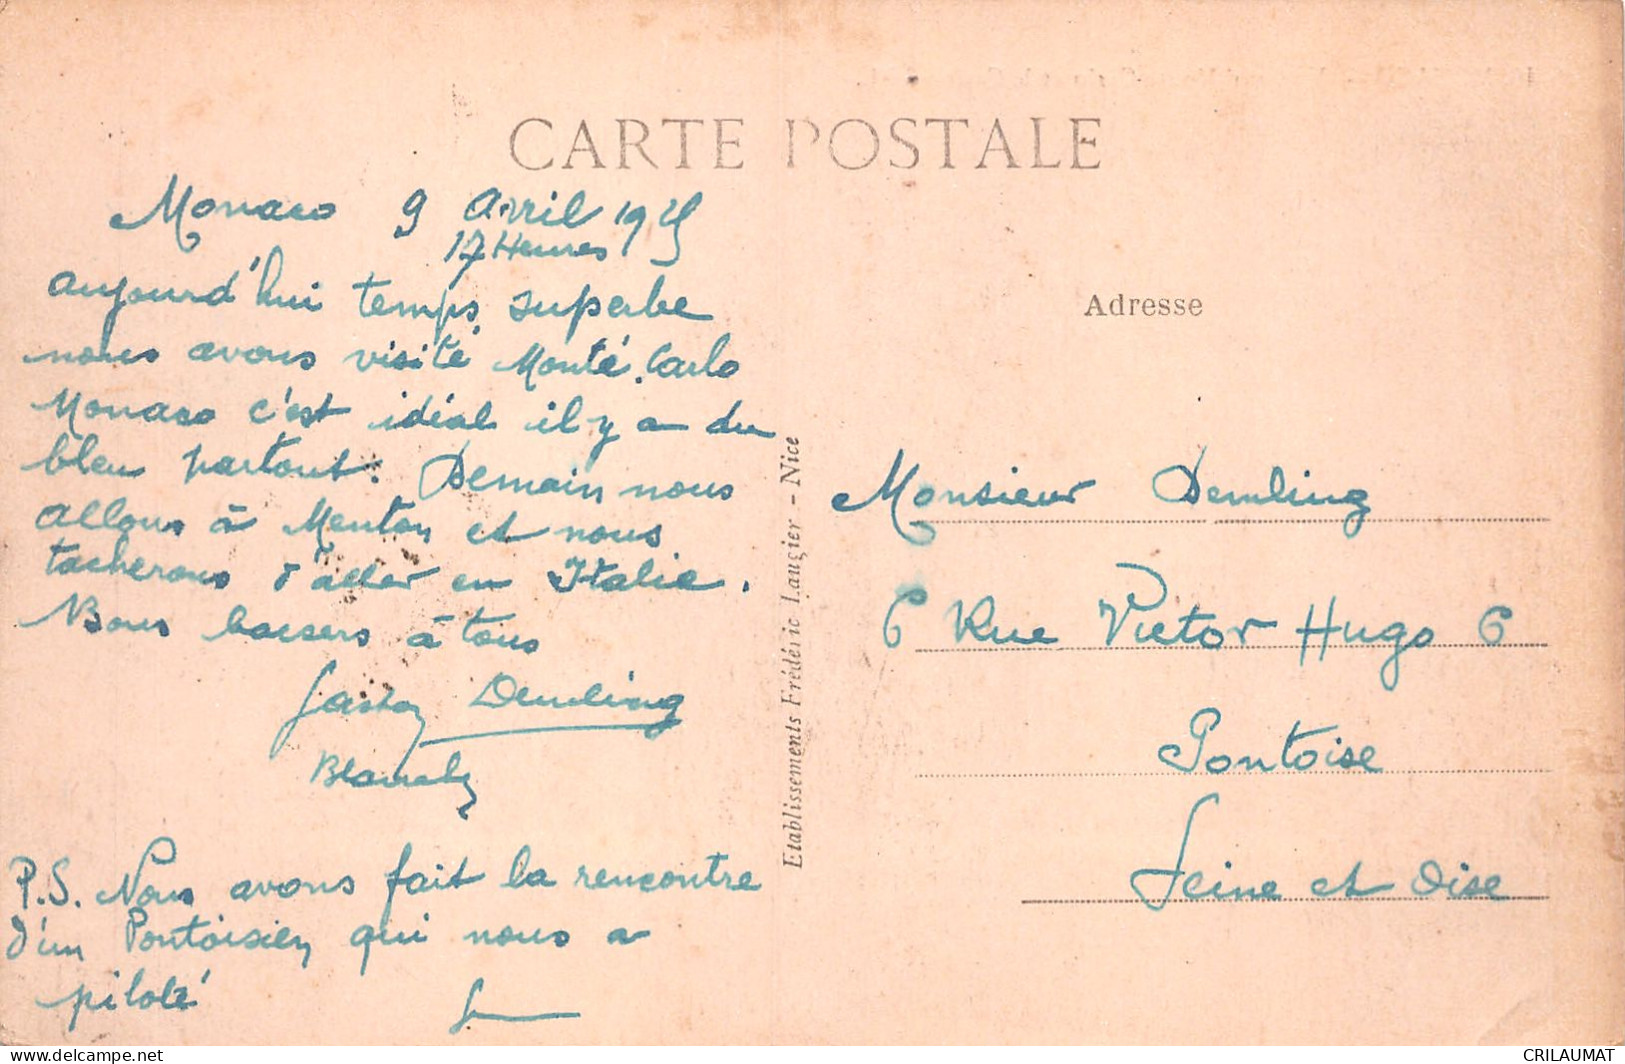 CARTE POSTALE
Monaco 9 Avril 1925
17 Heures
aujourd'hui temps superbe
nous avons visité Monté.Carlo
Monaco c'est idéal il y a du
bleu partout. Demain nous
allons à Menton et nous
tacherons d'aller en Italie.
Bons baisers à tous
Gaston Demling
Blanche
P.S. Nous avons fait la rencontre
d'un Pontoisien qui nous a
piloté
Etablissements Frédéric Laugier - Nice
Adresse
Monsieur Demling
6 Rue Victor Hugo 6
Pontoise
Seine et Oise
CRILAUMAT
delcampe.net